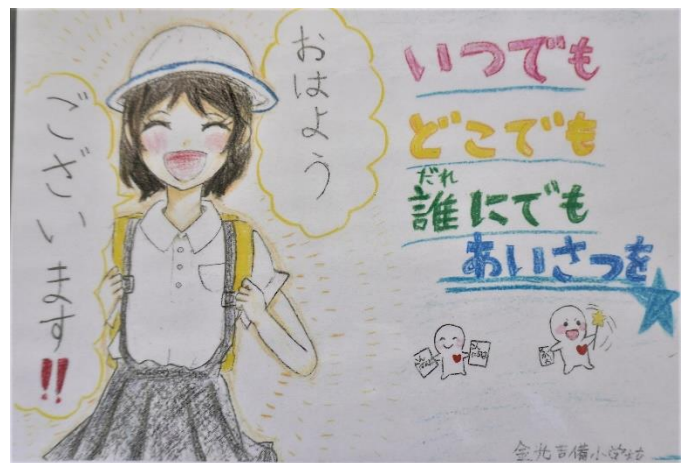 おはよう
ございます!!
いつでも
どこでも
だれ
誰にでも
あいさつを